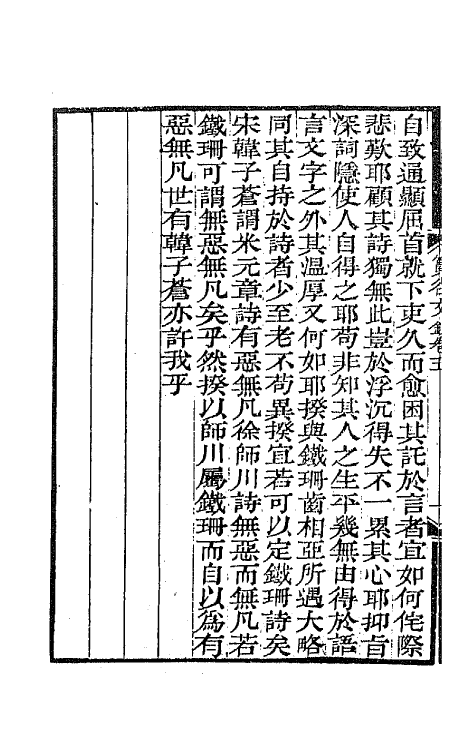 自致通顯屈首就下吏久而愈困其託於言者宜如何侘際
悲歎耶顧其詩獨無此豈於浮沉得失不一累其心耶抑旨
深詞隱使人自得之耶苟非知其人之生平幾無由得於語
言文字之外其溫厚又何如耶揆與鐵珊齒相亞所遇大略
同其自持於詩者少至老不苟異揆宜若可以定鐵珊詩矣
宋韓子蒼謂米元章詩有惡無凡徐師川詩無惡而無凡若
鐵珊可謂無惡無凡矣乎然揆以師川屬鐵珊而自以爲有
惡無凡世有韓子蒼亦許我乎
谷文錄卷五